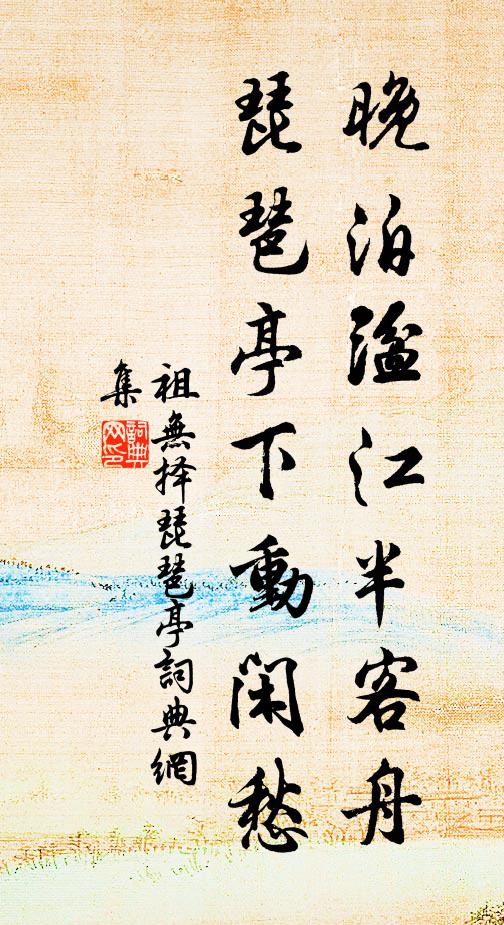 晚泊溢江半客舟
琵琶亭下動闲愁
祖無择琵琶亭詞典網
集
詞典
网印